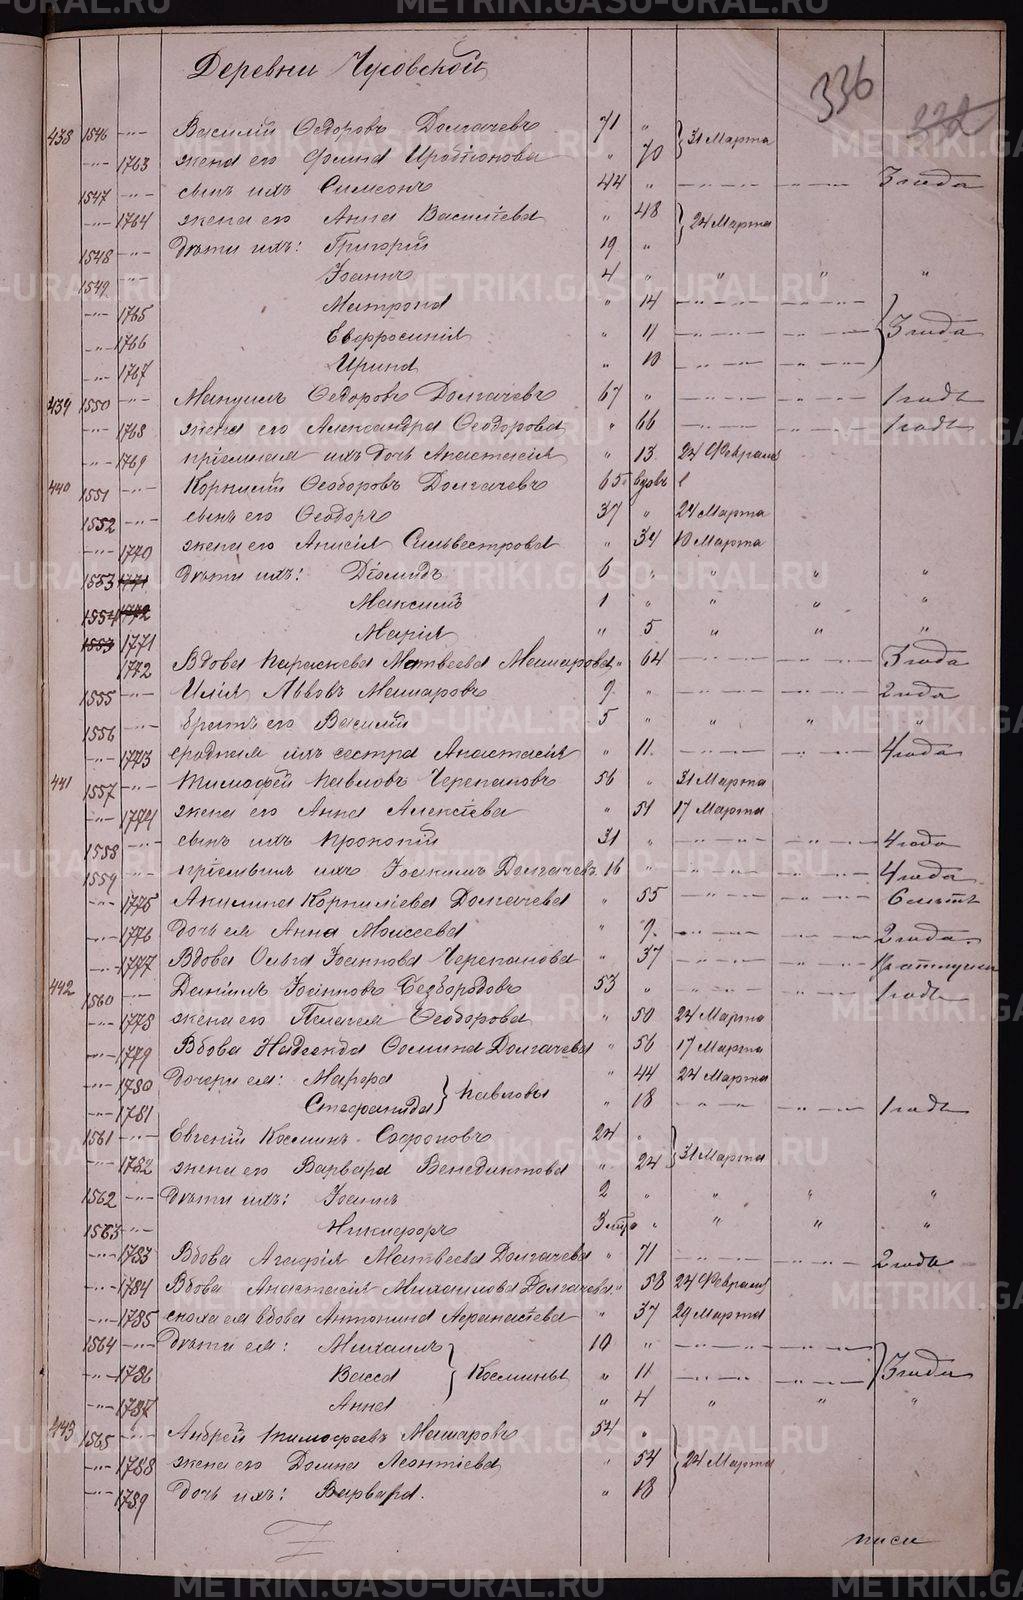 METRIKI.GASO-URAL.RU
Деревни Чусовской
336
438 1546 -"- Василій Ѳедоровъ Долгачевъ 71 " } 31 Марта
-"- 1763 жена его Иродіонова " 70
1547 -"- сынъ ихъ Симеонъ 44 " -"-"- -"-"- 3 года
-"- 1764 жена его Анна Васильева " 48 } 24 Марта
1548 -"- Дѣти ихъ: Григорій 19 "
1549 -"- Іоаннъ 4 " " " "
-"- 1765 Матрона " 14 -"-"- -"-"- } 3 года
-"- 1766 Евфросинія " 11 -"-"- -"-"-
-"- 1767 Ирина " 10 -"-"- -"-"-
439 1550 -"- Мануилъ Ѳедоровъ Долгачевъ 67 " -"-"- -"-"- 1 годъ
-"- 1768 жена его Александра Ѳеодорова " 66 -"-"- -"-"- 1 годъ
-"- 1769 пріемная ихъ дочь Анастасія " 13 24 Февраля
440 1551 -"- Корнилій Ѳеодоровъ Долгачевъ 65 вдовъ
1552 -"- сынъ его Ѳеодоръ 37 " 24 Марта
-"- 1770 жена его Анисія Сильвестрова " 34 10 Марта
1553 1771 Дѣти ихъ: Діомидъ 6 " " " "
1554 1772 Максимъ 1 " " " "
1553 1771 Марія " 5 " " "
1772 Вдова Параскева Матвеева Машарова " 64 -"-"- -"-"- 3 года
1555 -"- Илія Львовъ Машаровъ 9 " -"-"- -"-"- 2 года
1556 -"- братъ его Василій 5 " " " "
-"- 1773 сродная ихъ сестра Анастасія " 11 -"-"- -"-"- 4 года
441 1557 -"- Тимофей Павловъ Черепановъ 56 " 31 Марта
-"- 1774 жена его Анна Алексѣева " 51 17 Марта
1558 -"- сынъ ихъ Прокопій 31 " -"-"- -"-"- 4 года
1559 -"- пріемышъ ихъ Іоакимъ Долгачевъ 16 " -"-"- -"-"- 4 года
-"- 1775 Акилина Корниліева Долгачева " 55 -"-"- -"-"- 6 лѣтъ
-"- 1776 дочь ея Анна Моисеева " 9 -"-"- -"-"- 2 года
-"- 1777 Вдова Ольга Іоаннова Черепанова " 37 -"-"- -"-"-
442 1560 -"- Даніилъ Іоанновъ Безбородовъ 53 " -"-"- -"-"- 1 годъ
-"- 1778 жена его Пелагея Ѳеодорова " 50 24 Марта
-"- 1779 Вдова Надежда Долгачева " 56 17 Марта
-"- 1780 дочери ея: Марфа } Павловы " 44 24 Марта
-"- 1781 Стефанида " 18 -"-"- -"-"- 1 годъ
1561 -"- Евгеній Косминъ Софроновъ 24 " } 31 Марта
-"- 1782 жена его Варвара Венедиктова " 24
1562 -"- Дѣти ихъ: Іоаннъ 2 " " " "
1563 -"- Никифоръ " " " "
-"- 1783 Вдова Агафія Матвеева Долгачева " 71 -"-"- -"-"- 2 года
-"- 1784 Вдова Анастасія Михаилова Долгачева " 58 24 Февраля
-"- 1785 сноха ея вдова Антонина Афанасіева " 37 24 Марта
1564 -"- Дѣти ея: Михаилъ } Космины 10 " -"-"- -"-"- } 3 года
-"- 1786 Васса " 11 -"-"- -"-"-
-"- 1787 Анна " 4 " " "
443 1565 -"- Андрей Тимофеевъ Машаровъ 54 " } 24 Марта
-"- 1788 жена его Домна Леонтіева " 54
-"- 1789 дочь ихъ: Варвара. " 18